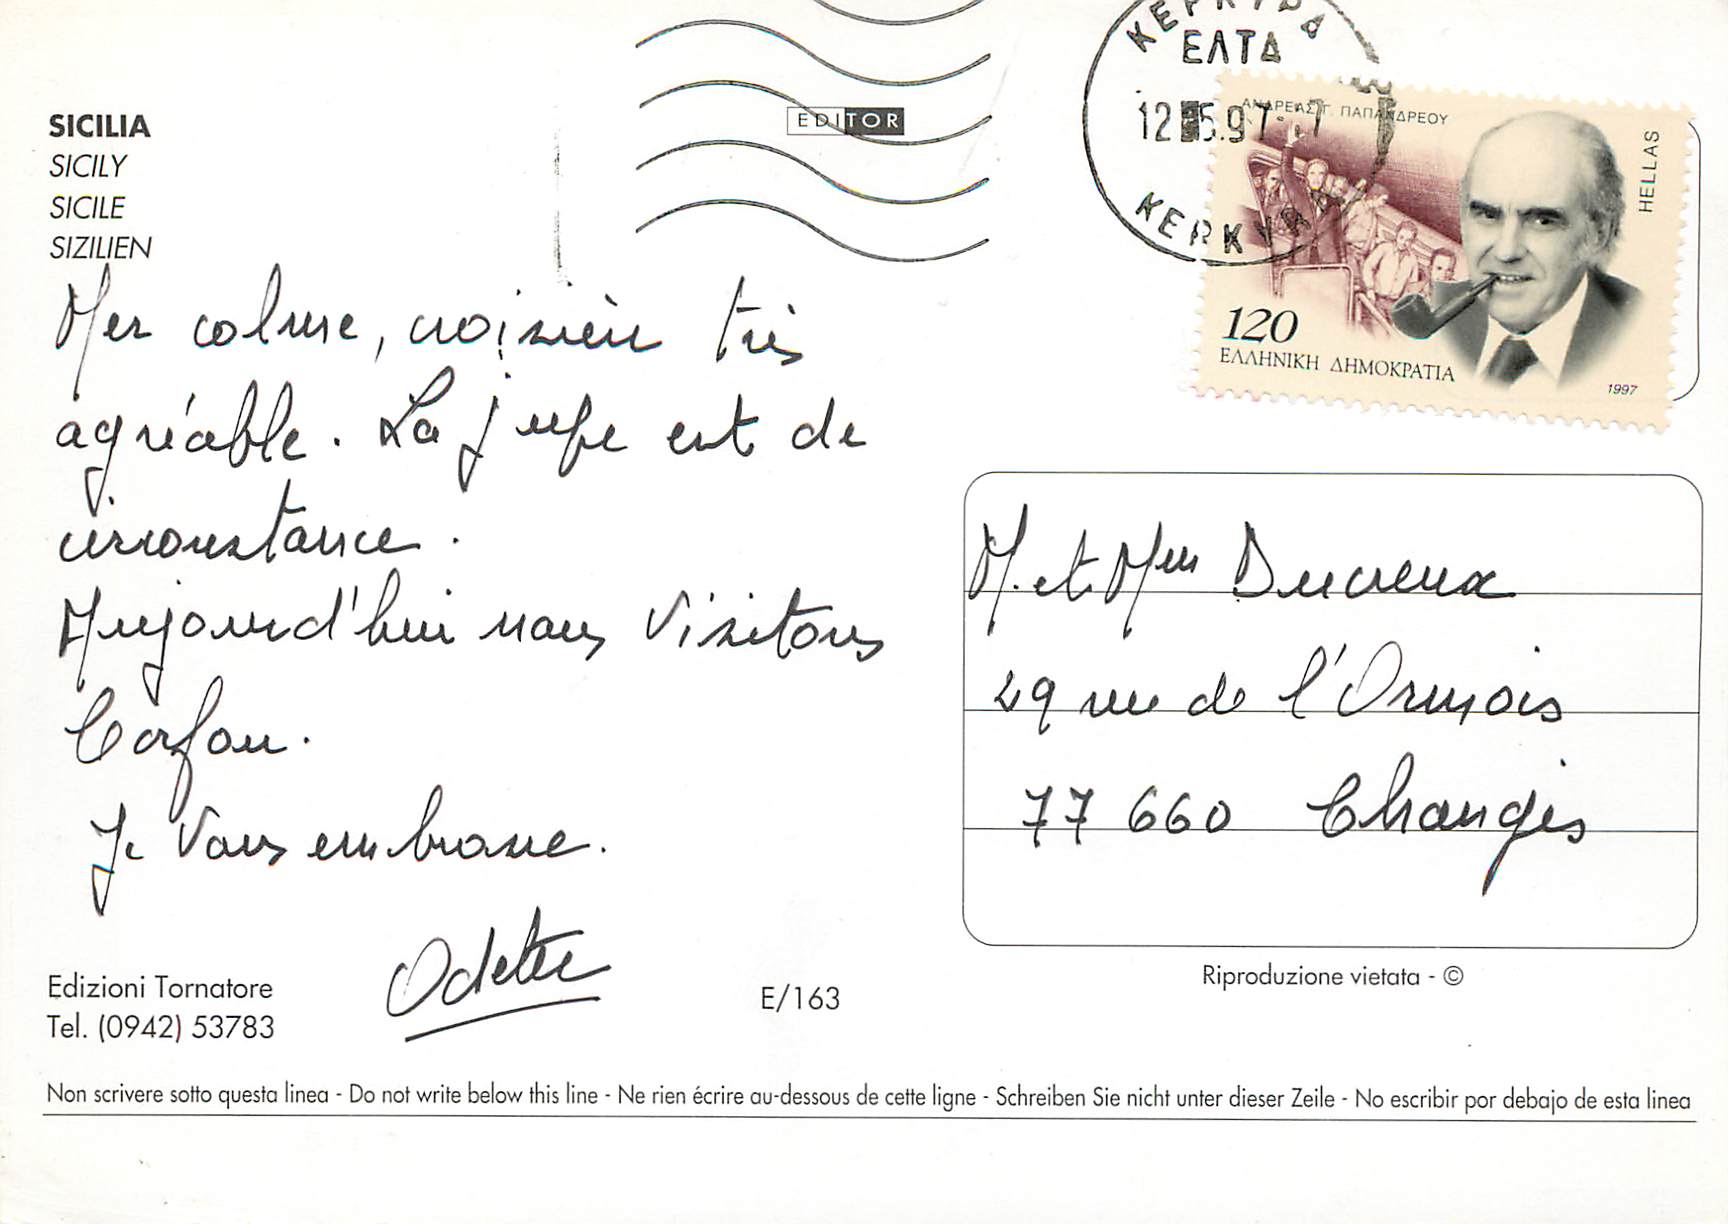 SICILIA
SICILY
SICILE
SIZILIEN
EDITOR
ΚΕΡΚΥΡΑ
ΕΛΤΑ
12 5.97
KERKYRA
ΑΝΔΡΕΑΣ Γ. ΠΑΠΑΝΔΡΕΟΥ
HELLAS
120
ΕΛΛΗΝΙΚΗ ΔΗΜΟΚΡΑΤΙΑ
1997
Mer calme, croisière très
agréable. La jupe est de
circonstance.
Aujourd'hui nous visitons
Corfou.
Je vous embrasse.
Odette
M. et Mme Ducreux
29 rue de l'Ormois
77 660 Changis
Edizioni Tornatore
Tel. (0942) 53783
E/163
Riproduzione vietata - ©
Non scrivere sotto questa linea - Do not write below this line - Ne rien écrire au-dessous de cette ligne - Schreiben Sie nicht unter dieser Zeile - No escribir por debajo de esta linea